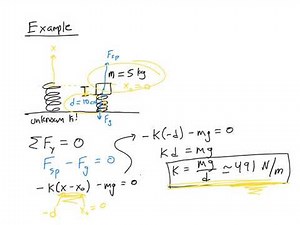 Example
x
F_sp
m = 5 kg
x_o = 0
d = 10cm
unknown k!
F_g
ΣF_y = 0
F_sp - F_g = 0
-K(x-x_o) - mg = 0
-d
x_o = 0
-K(-d) - mg = 0
Kd = mg
K = mg/d ≃ 491 N/m